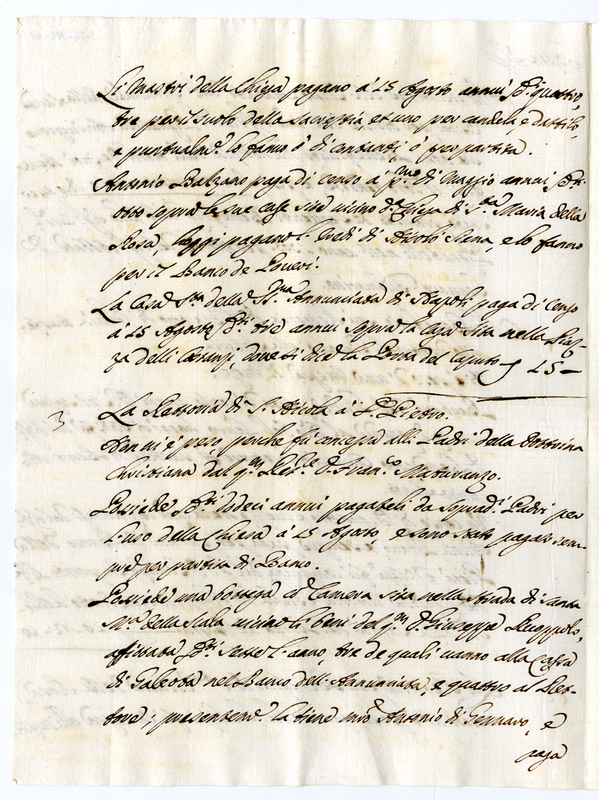 Li Mastri della Chiesa pagano à 15 Agosto annui D.ti quattro,
tre per il suolo della Sacrestia, et uno per candele, e dattilo,
e puntualm.te lo fanno ò di contanti, ò per partita.
Antonio Balzano paga di censo à p.mo di Maggio annui D.ti
otto sopra le sue case site vicino d.a Chiesa di S.ta Maria della
Rosa, hoggi pagano l'heredi di Nicolò Siena, e lo fanno
per il Banco de Poveri.
La Casa S.ta della SS.ma Annunciata di Napoli paga di censo
à 15 Agosto D.ti tre annui sopra la casa sita nella Piaz-
za delli, dove si dice la Porta del Caputo 15 -
3 La Rettoria di S. Nicola à D. Pietro.
Non vi è però, perche fù concessa alli Padri della Dottrina
Christiana dal q.m Rett.re D. Fran.co Maturanzo.
Possiede D.ti dodeci annui pagateli da soprad.i Padri per
l'uso della Chiesa à 15 Agosto, e sono stati pagati sem-
pre per partita di Banco.
Possiede una bottega cò Camera sita nella Strada di Santa
M.a della Scala vicino li beni del q.m D. Giuseppe,
affittata D.ti Sette l'anno, tre de quali vanno alla Cassa
di Galeota nel Banco dell'Annunciata, e quattro al Ret-
tore; presentem.te la tiene m.ro Antonio di Gennaro, e
paga